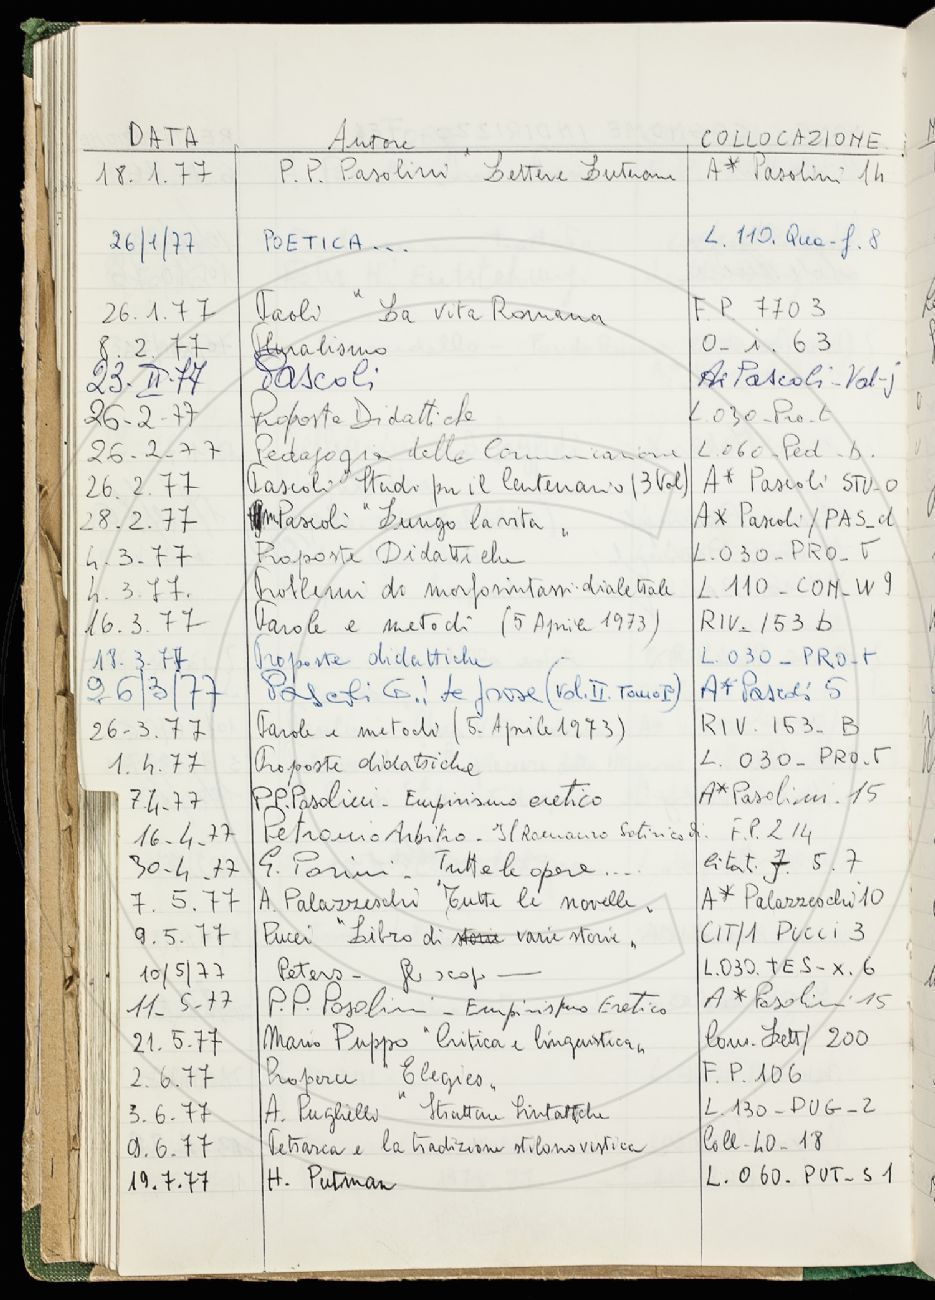 DATA Autore COLLOCAZIONE
18.1.77 P.P. Pasolini "Lettere Luterane A* Pasolini 14
26/1/77 POETICA.... L. 110. Qua-f. 8
26.1.77 Paoli "La vita Romana F.P. 770 3
8.2.77 Pluralismo O- i. 63
23.II.77 Pascoli A* Pascoli-Val-j
26-2-77 Proposte Didattiche L.030-Pro-t
26-2-77 Pedagogia della Comunicazione L.060-Ped-b.
26.2.77 Pascoli "Studi per il Centenario (3 Vol) A* Pascoli STU-O
28.2.77 Pascoli "Lungo la vita" A* Pascoli/PAS_d
4.3.77 Proposte Didattiche L.030-PRO-T
4.3.77. Problemi di morfosintassi dialettale L.110-CON-W9
16.3.77 Parole e metodi (5 Aprile 1973) RIV-153 b
18.3.77 Proposte didattiche L.030-PRO-t
26/3/77 Pascoli G.: Le prose (Vol. II. Tomo I°) A* Pascoli 5
26-3.77 Parole e metodi (5. Aprile 1973) RIV. 153-B
1.4.77 Proposte didattiche L. 030-PRO.T
7.4-77 P.P. Pasolini-Empirismo eretico A* Pasolini.15
16-4-77 Petronio Arbitro-Il Romanzo Satirico di. F.P. 214
30-4-77 G. Parini-Tutte le opere.... Citat. 5.7
7.5.77 A. Palazzeschi "Tutte le novelle" A* Palazzeschi 10
9.5.77 Pucci "Libro di storie varie storie" CIT/1 PUCCI 3
10/5/77 Peters- L.030.TES-x.6
11-5-77 P.P. Pasolini-Empirismo Eretico A* Pasolini 15
21.5.77 Mario Puppo "Critica e linguistica" Com. Lett/ 200
2.6.77 Properzi "Elegies" F.P. 106
3.6.77 A. Puglielli "Strutture Sintattiche L.130-PUG-2
9.6.77 Petrarca e la tradizione stilnovistica Coll-40-18
19.7.77 H. Putman L.060-PUT-S1